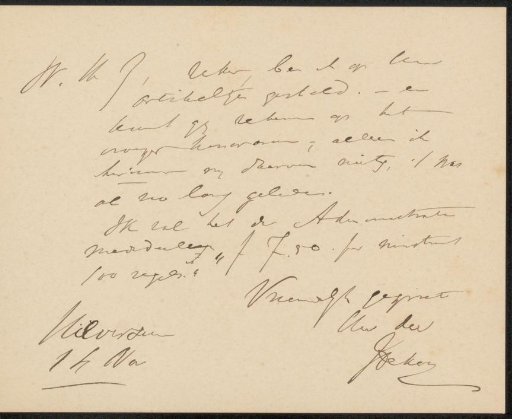 W. H, Zeker, ben ik op Uw
artikeltje gesteld. – en
kunt gij rekenen op het
vroeger honorarium; alleen ik
herinner mij daarvan niets, 't was
al zoo lang geleden.
Ik zal het de Administratie
mededeelen „ f 7.50 per minstens
100 regels."
Vriendelijk gegroet
Uw dw
Hilversum
14 Nov